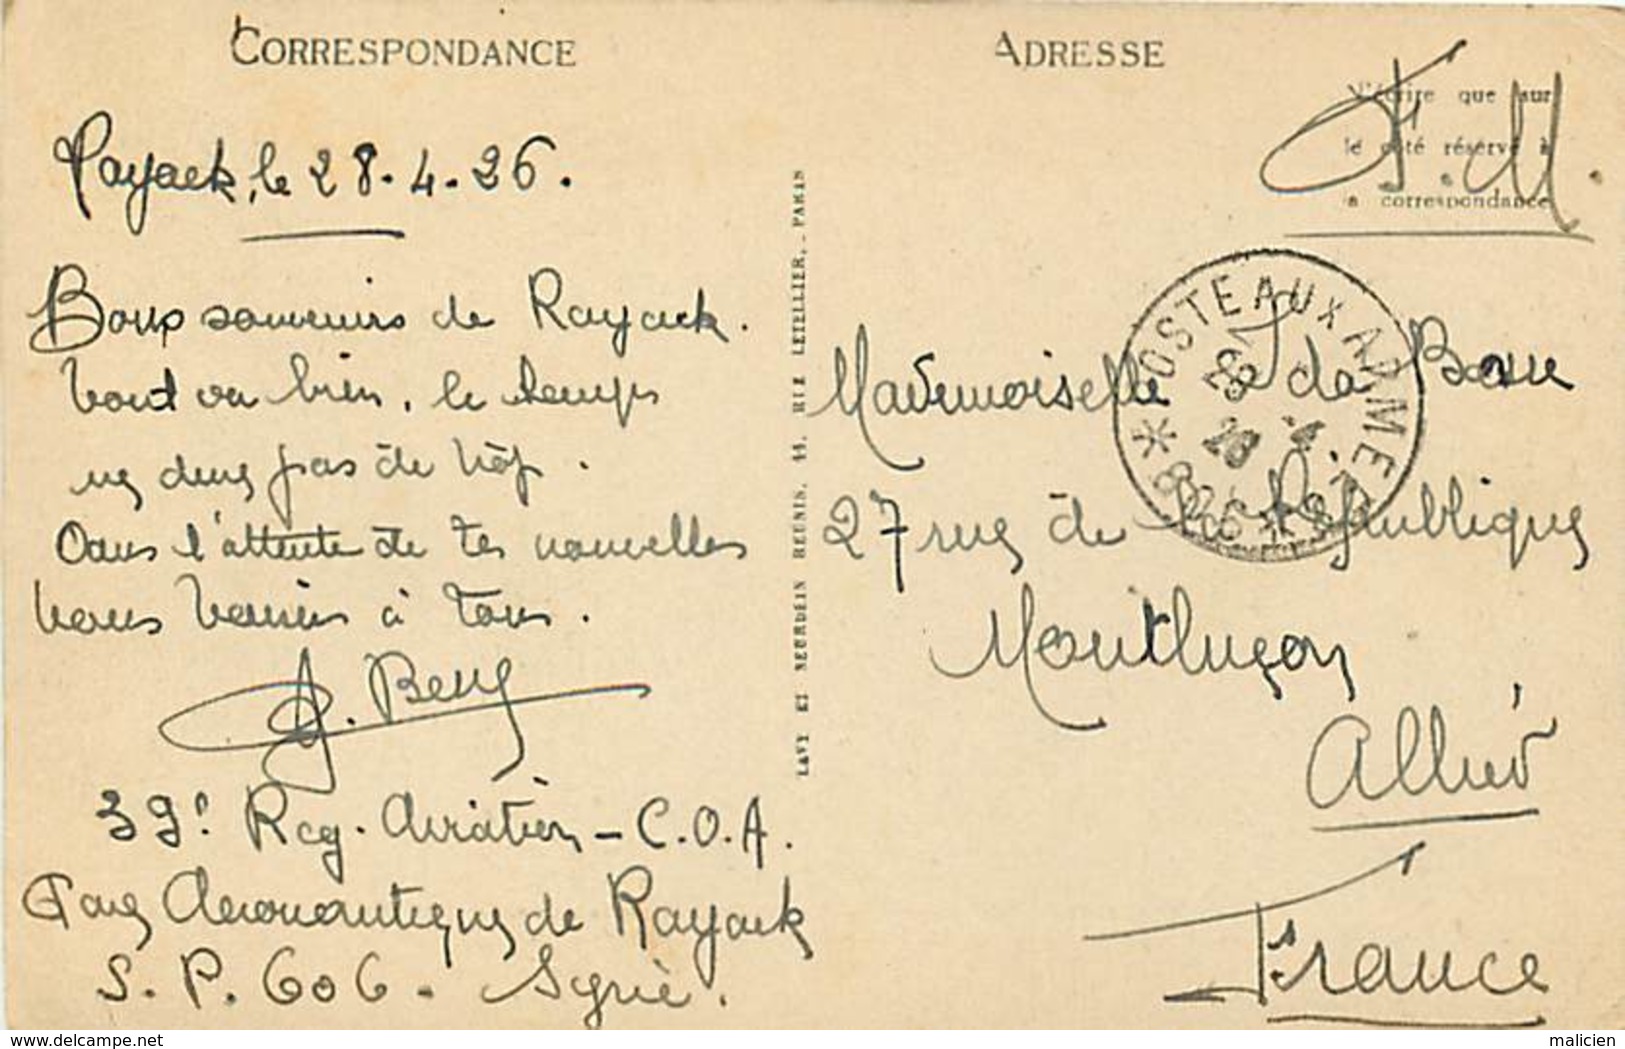 CORRESPONDANCE
Rayack, le 28-4-26.
Bons souvenirs de Rayack.
tout va bien, le temps
ne dure pas de trop.
Dans l'attente de tes nouvelles
bons baisers à tous.
J. Bery
39e Reg. Aviation - C.O.A.
Parc Aeronautique de Rayack
S.P. 606 - Syrie.
LEVY ET NEURDEIN REUNIS, 44, RUE LETELLIER, PARIS
ADRESSE
F.M.
N'écrire que sur
le côté réservé à
la correspondance
POSTE AUX ARMEES
28 -4
26
Mademoiselle
27 rue de la République
Montluçon
Allier
France
delcampe.net
malicien